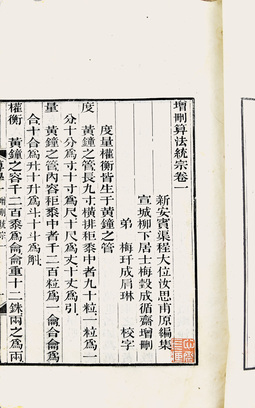 增刪算法統宗卷一
新安賓渠程大位汝思甫原編集
宣城柳下居士梅瑴成循齋增刪
弟 梅玕成肩琳 校字
度量權衡皆生于黃鐘之管
度 黃鐘之管長九寸橫排秬黍中者九十粒一粒爲一
分十分爲寸十寸爲尺十尺爲丈十丈爲引
量 黃鐘之管內容秬黍中者千二百粒爲一龠合龠爲
合十合爲升十升爲斗十斗爲斛
權衡 黃鐘之容千二百黍爲龠龠重十二銖兩之爲兩